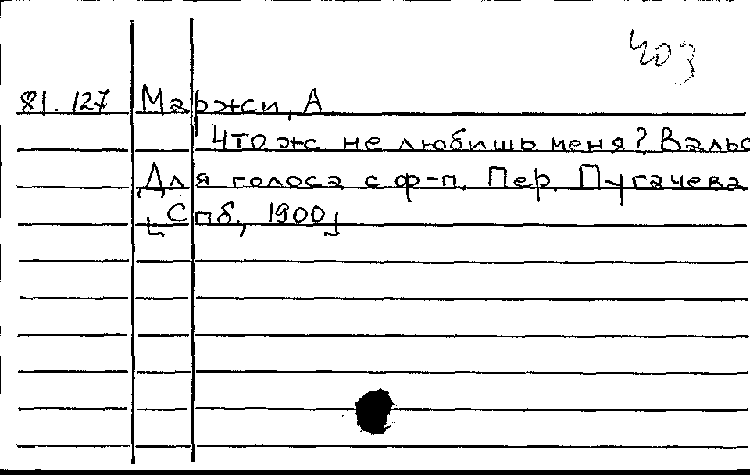 403
81.127 Маржси, А
Что ж не любишь меня? Вальс
Для голоса с ф-п. Пер. Пугачева
[Спб., 1900]